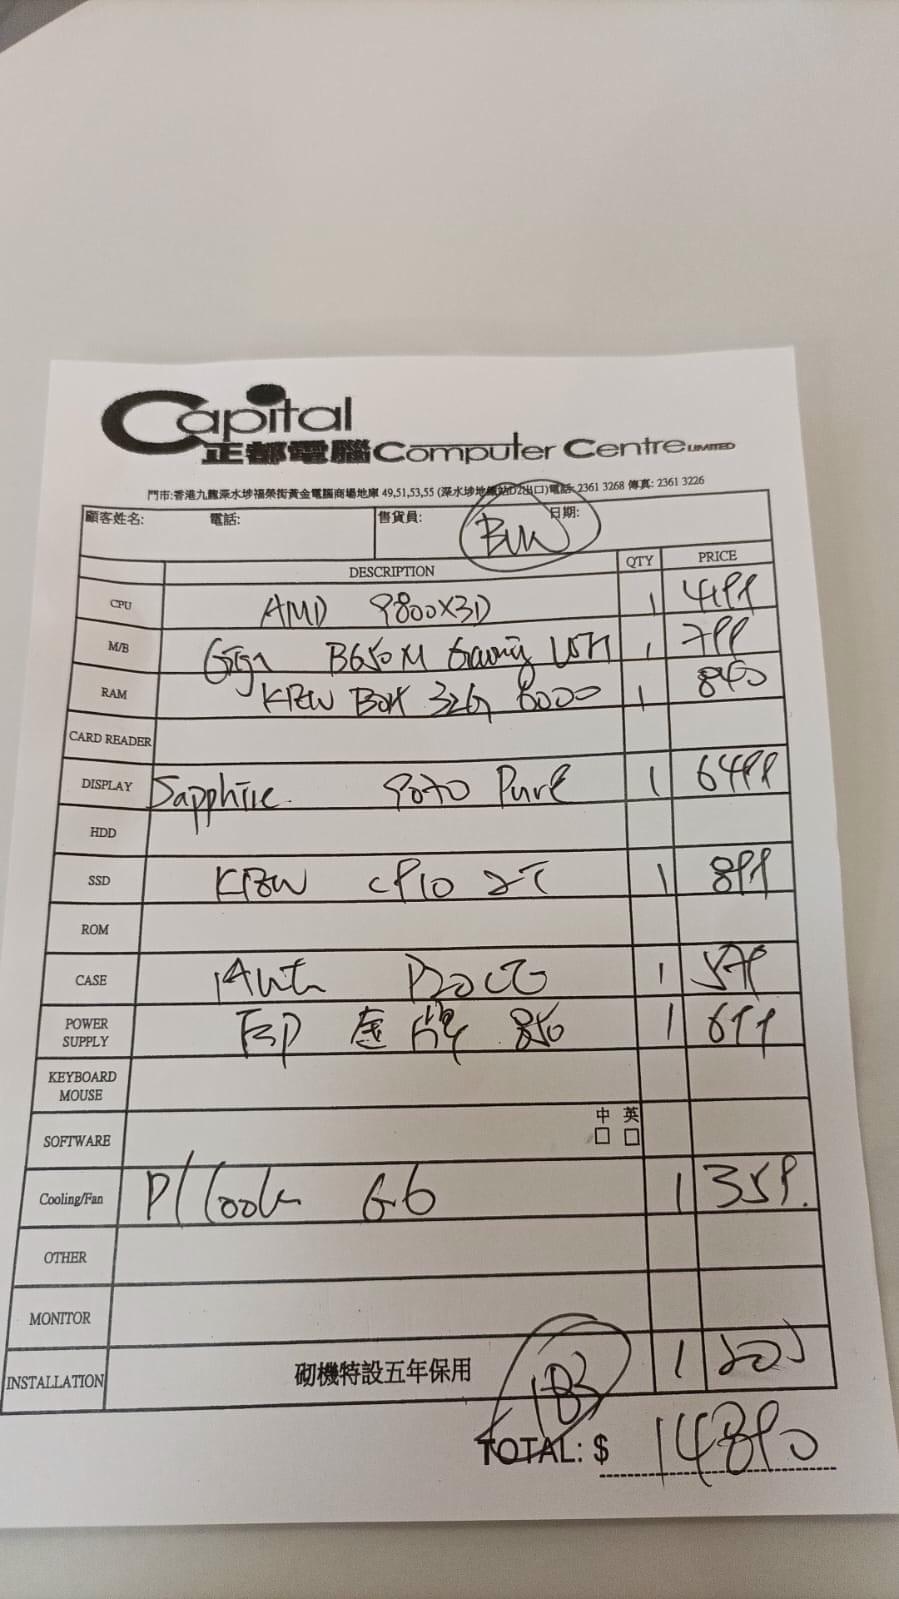 Capital
正都電腦 Computer Centre LIMITED
門市:香港九龍深水埗福榮街黃金電腦商場地庫 49,51,53,55 (深水埗地鐵站D2出口)電話: 2361 3268 傳真: 2361 3226
顧客姓名: 電話: 售貨員: 日期:
DESCRIPTION QTY PRICE
CPU AMD 9800X3D 1 4199
M/B Giga B650M Gaming 1 799
RAM 32G 6000 1 840
CARD READER
DISPLAY Sapphire 9070 Pure 1 6499
HDD
SSD 1 899
ROM
CASE 1
POWER SUPPLY 850 1 699
KEYBOARD MOUSE
SOFTWARE 中 英
Cooling/Fan G6 1 359.
OTHER
MONITOR
INSTALLATION 砌機特設五年保用 1
TOTAL: $